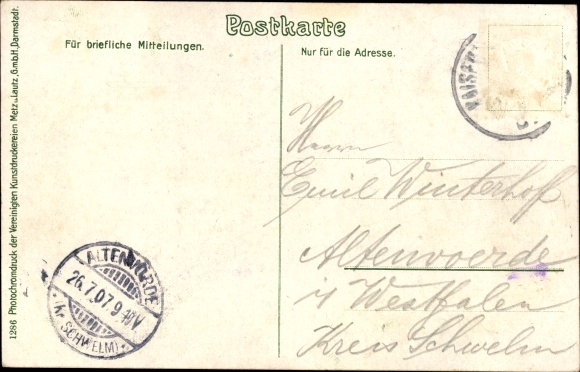 Postkarte
Für briefliche Mitteilungen.
Nur für die Adresse.
Herrn
Emil Winterhoff
Altenvoerde
i/ Westfalen
Kreis Schwelm
ALTENVÖRDE
26.7.07.9-10V
(Kr. SCHWELM)
1286 Photochromdruck der Vereinigten Kunstdruckereien Metz u. Lautz, G.m.b.H., Darmstadt.